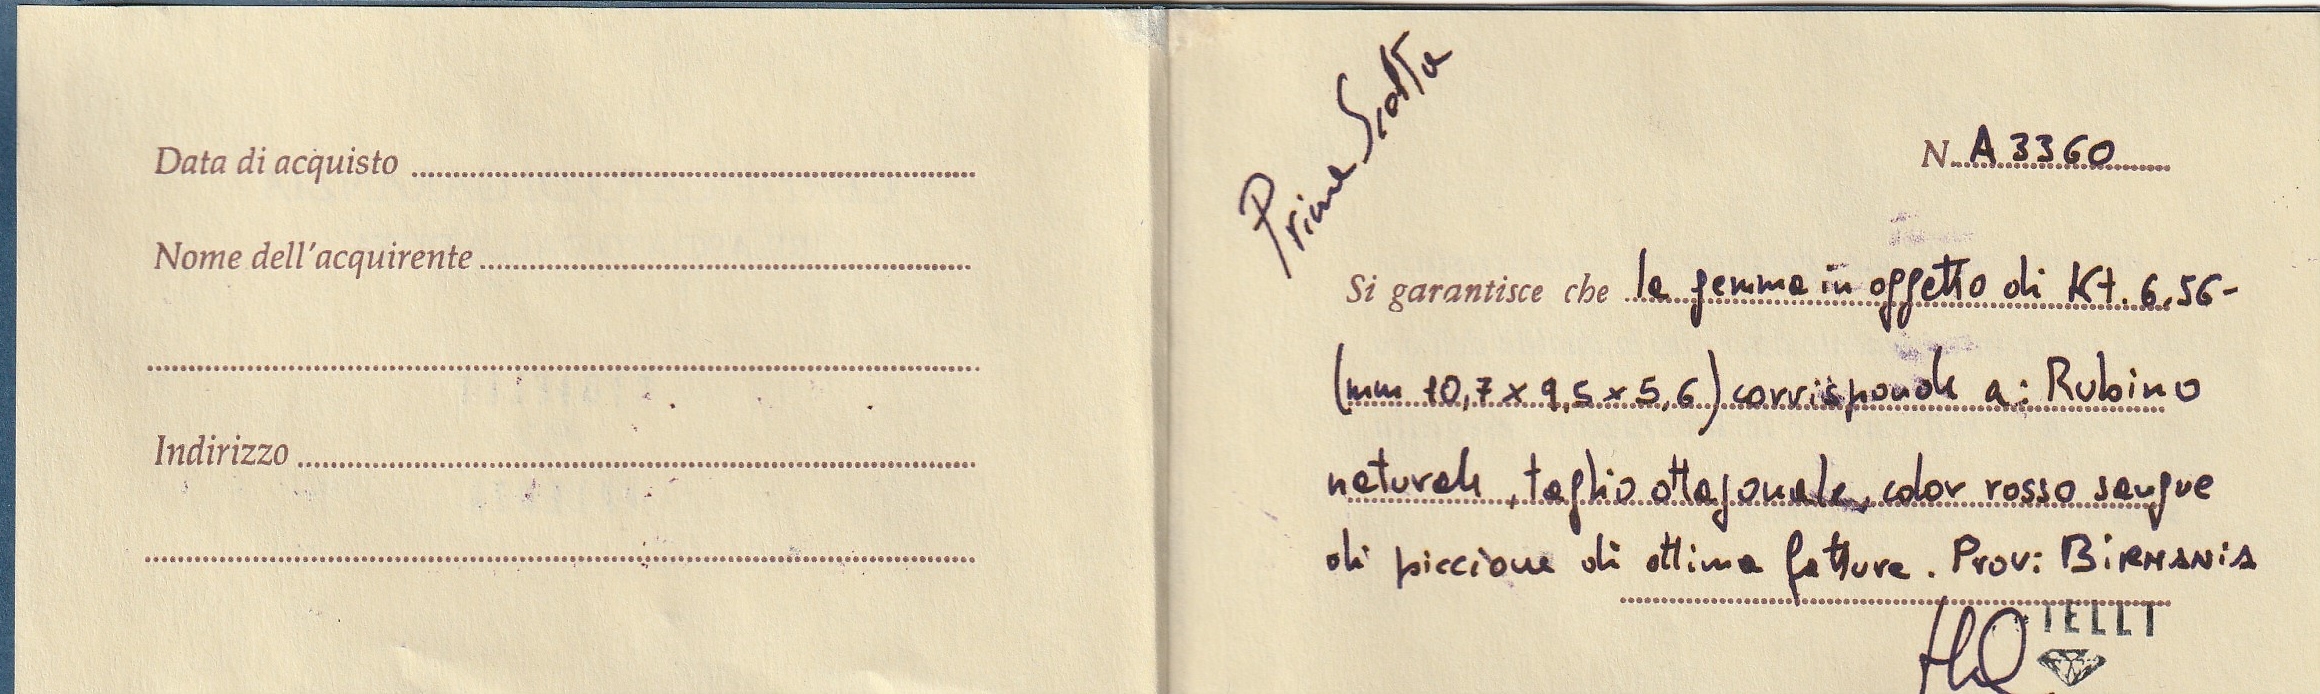 Data di acquisto
Nome dell'acquirente
Indirizzo
Prima Scelta
N. A 3360
Si garantisce che la gemma in oggetto di Kt. 6,56-
(mm 10,7 x 9,5 x 5,6) corrisponde a: Rubino
naturale, taglio ottagonale, color rosso sangue
di piccione di ottima fattura. Prov: BIRMANIA
TELLI